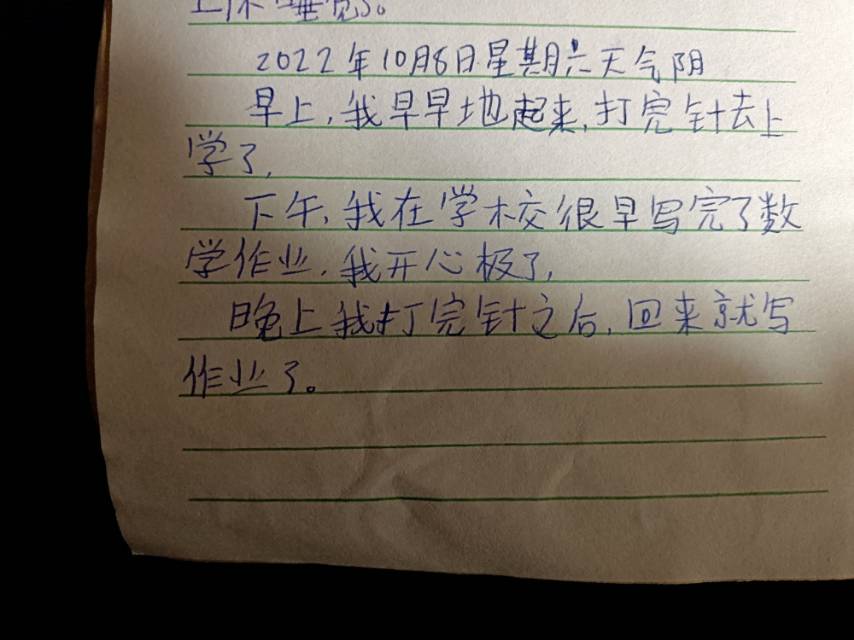 上床睡觉。
2022年10月8日星期六天气阴
早上,我早早地起来,打完针去上
学了,
下午,我在学校很早写完了数
学作业,我开心极了,
晚上我打完针之后,回来就写
作业了。